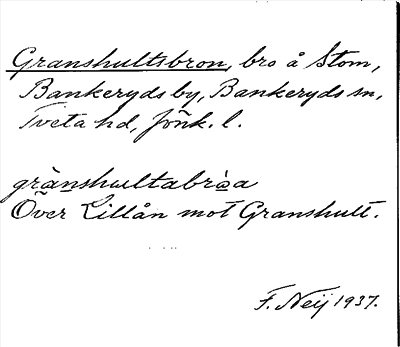 Granshultsbron, bro å Stom,
Bankeryds by, Bankeryds sn,
Tveta hd, Jönk. l.
grànshultabròa
Över Lillån mot Granshult.
F. Neij 1937.